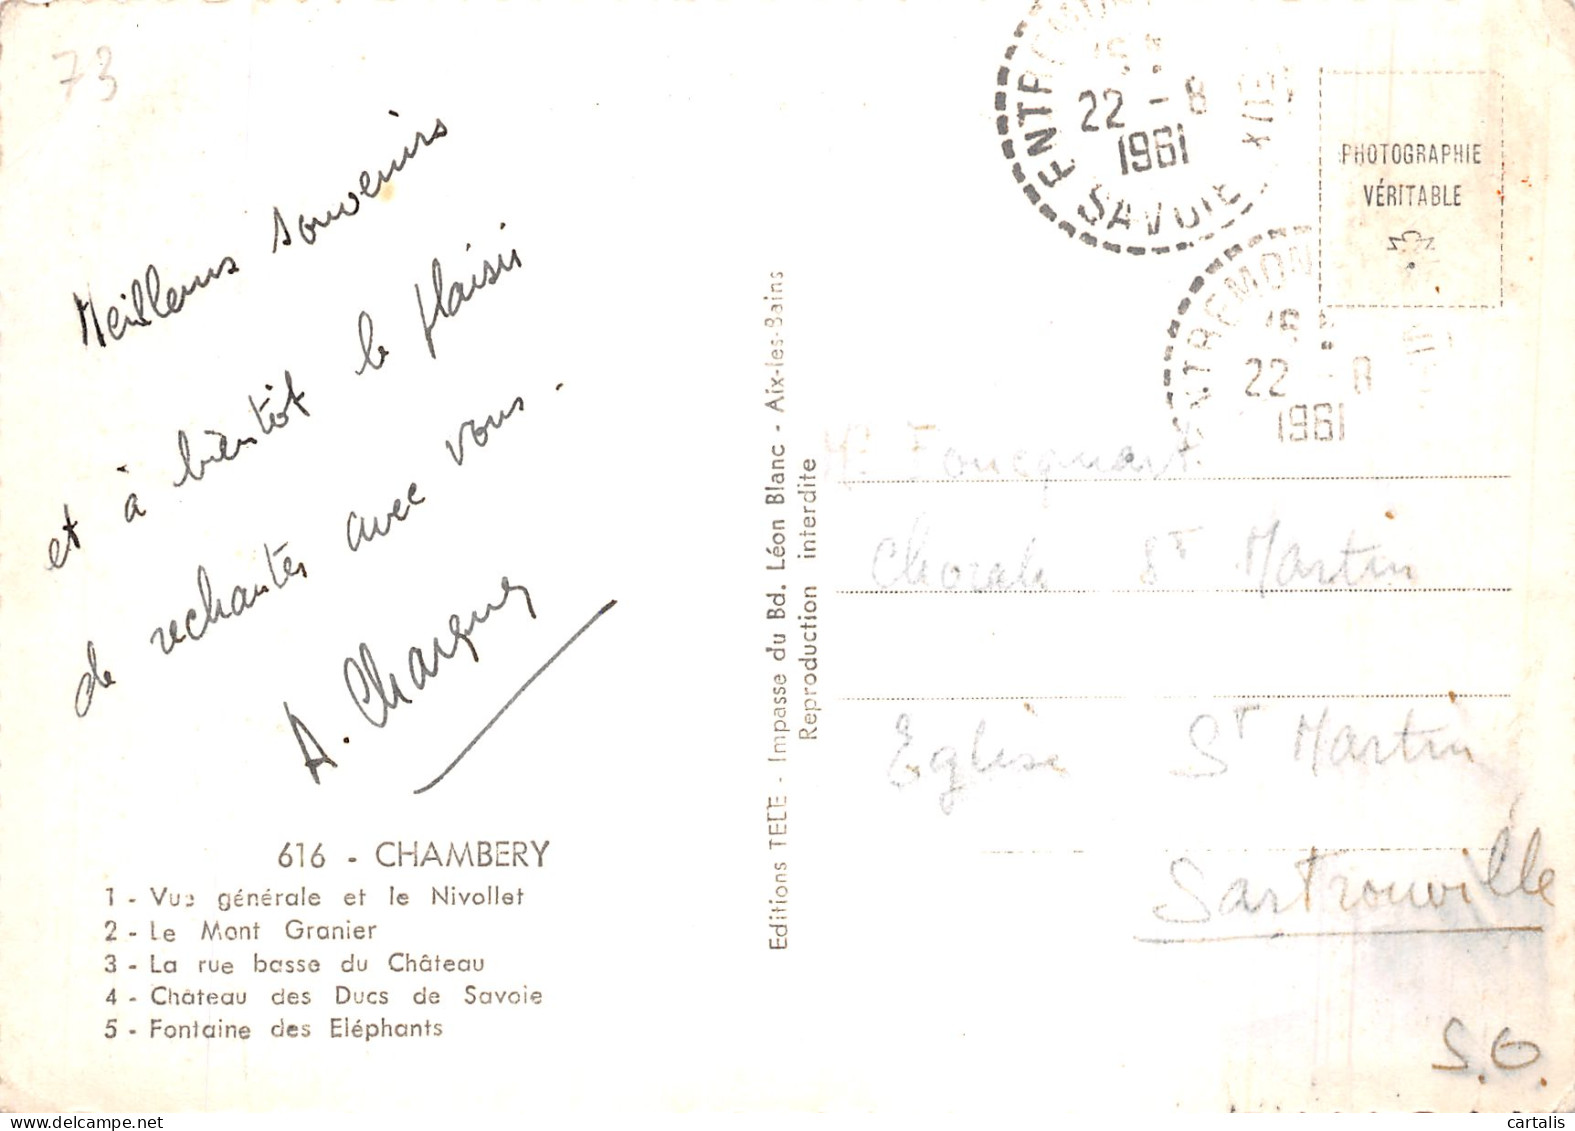 73
Meilleurs souvenirs
et à bientôt le plaisir
de rechantés avec vous.
A. Charques
616 - CHAMBERY
1 - Vue générale et le Nivollet
2 - Le Mont Granier
3 - La rue basse du Château
4 - Château des Ducs de Savoie
5 - Fontaine des Eléphants
Editions TELE - Impasse du Bd. Léon Blanc - Aix-les-Bains
Reproduction interdite
22 - 8
1961
SAVOIE
PHOTOGRAPHIE
VÉRITABLE
ENTREMON
22 - 8
1961
Mr Foucquart
Chorale St Martin
Eglise St Martin
Sartrouville
S.O.
cartalis